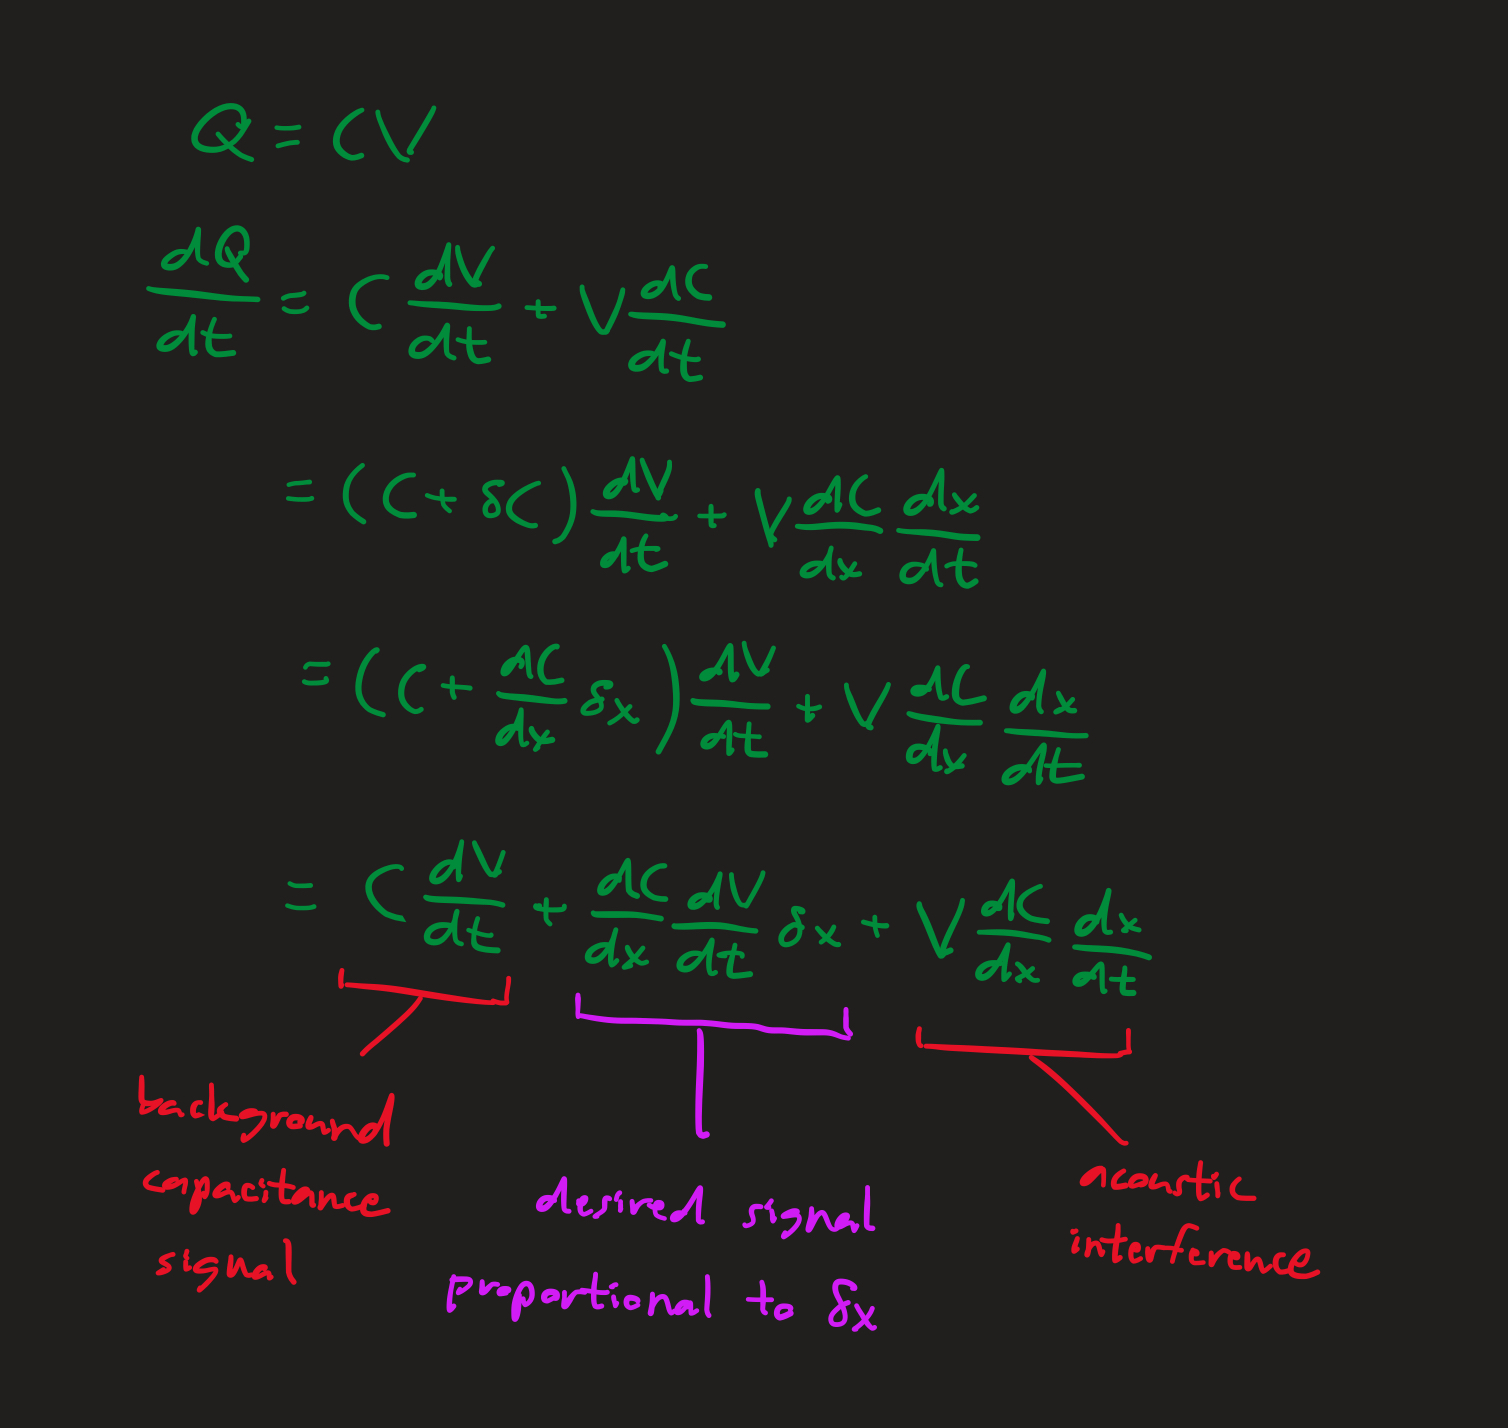 Q = CV
dQ/dt = C dV/dt + V dC/dt
= (C + δC) dV/dt + V dC/dx dx/dt
= (C + dC/dx δx) dV/dt + V dC/dx dx/dt
= C dV/dt + dC/dx dV/dt δx + V dC/dx dx/dt
background
capacitance
signal
desired signal
proportional to δx
acoustic
interference